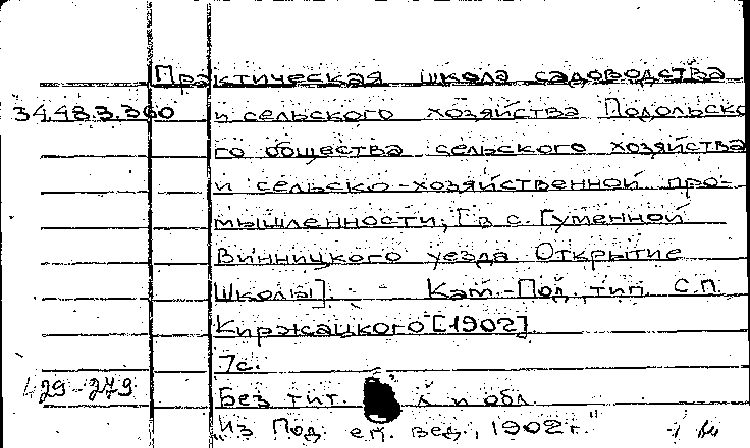 Практическая школа садоводства
34.483.360 и сельского хозяйства Подольско
го общества сельского хозяйства
и сельско-хозяйственной про-
мышленности, [в с. Гуменной
Винницкого уезда Открытие
школы]. - Кам.-Под, тип. С.П.
Киржацкого [1902]
7с.
429-279
Без тит. л и обл.
"Из Под. еп. вед., 1902г."